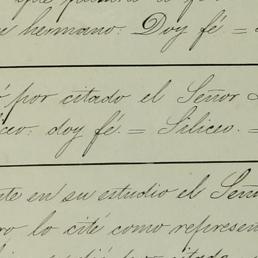 hermano: Doy fé =
por citado el Señor
doy fé. = Siliceo. =
en su estudio el Seño
lo cité como represen